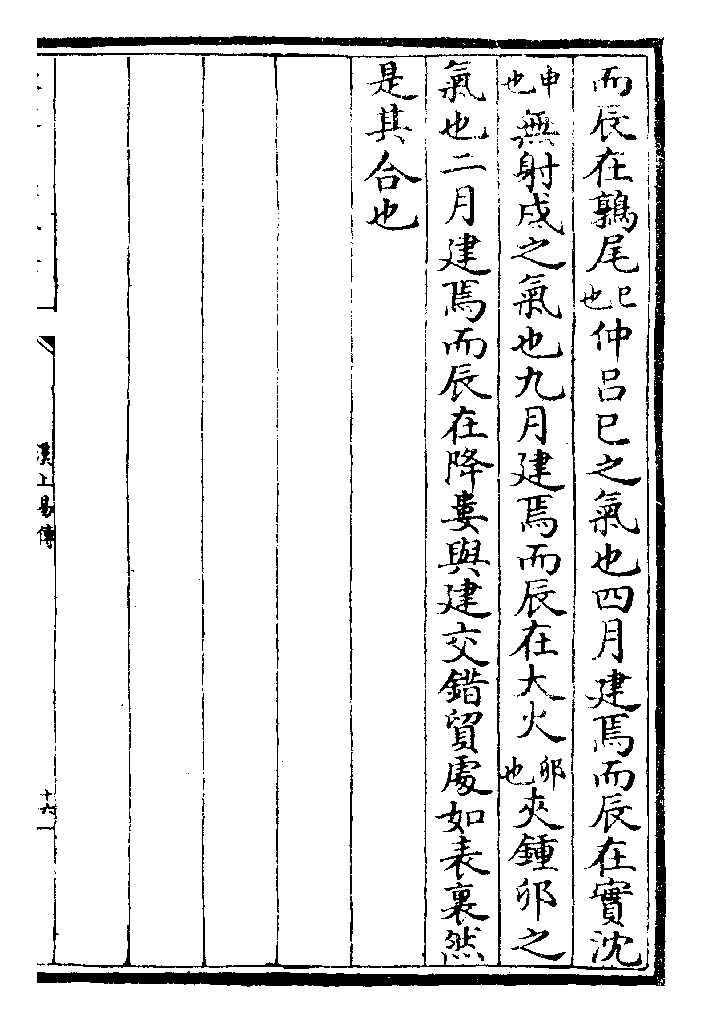 而辰在鶉尾巳也仲呂巳之氣也四月建焉而辰在實沈
申也無射戌之氣也九月建焉而辰在大火卯也夾鍾卯之
氣也二月建焉而辰在降婁與建交錯貿處如表裏然
是其合也
漢上易傳
十六